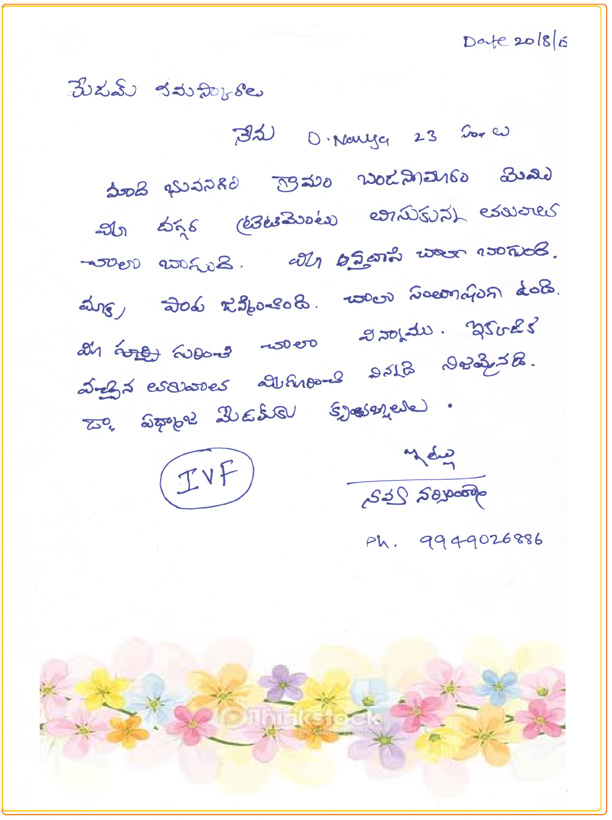 Date 20/8/15
మేడమ్ నమస్కారాలు
నేను D. Navya 23 సం॥లు
మాది భువనగిరి గ్రామం మేము
మీ దగ్గర ట్రీట్‌మెంటు తీసుకున్న తరువాత
చాలా బాగుంది. మీ చాలా బాగుంది.
మాకు పాప జన్మించింది. చాలా సంతోషంగా ఉంది.
మీ గురించి చాలా విన్నాము. ఇక్కడికి
వచ్చిన తరువాత మీగురించి విన్నది నిజమైనది.
డా. పద్మజ మేడమ్‌కు కృతజ్ఞతలు.
ఇట్లు
IVF
నవ్య
Ph. 9949026886
Thinkstock